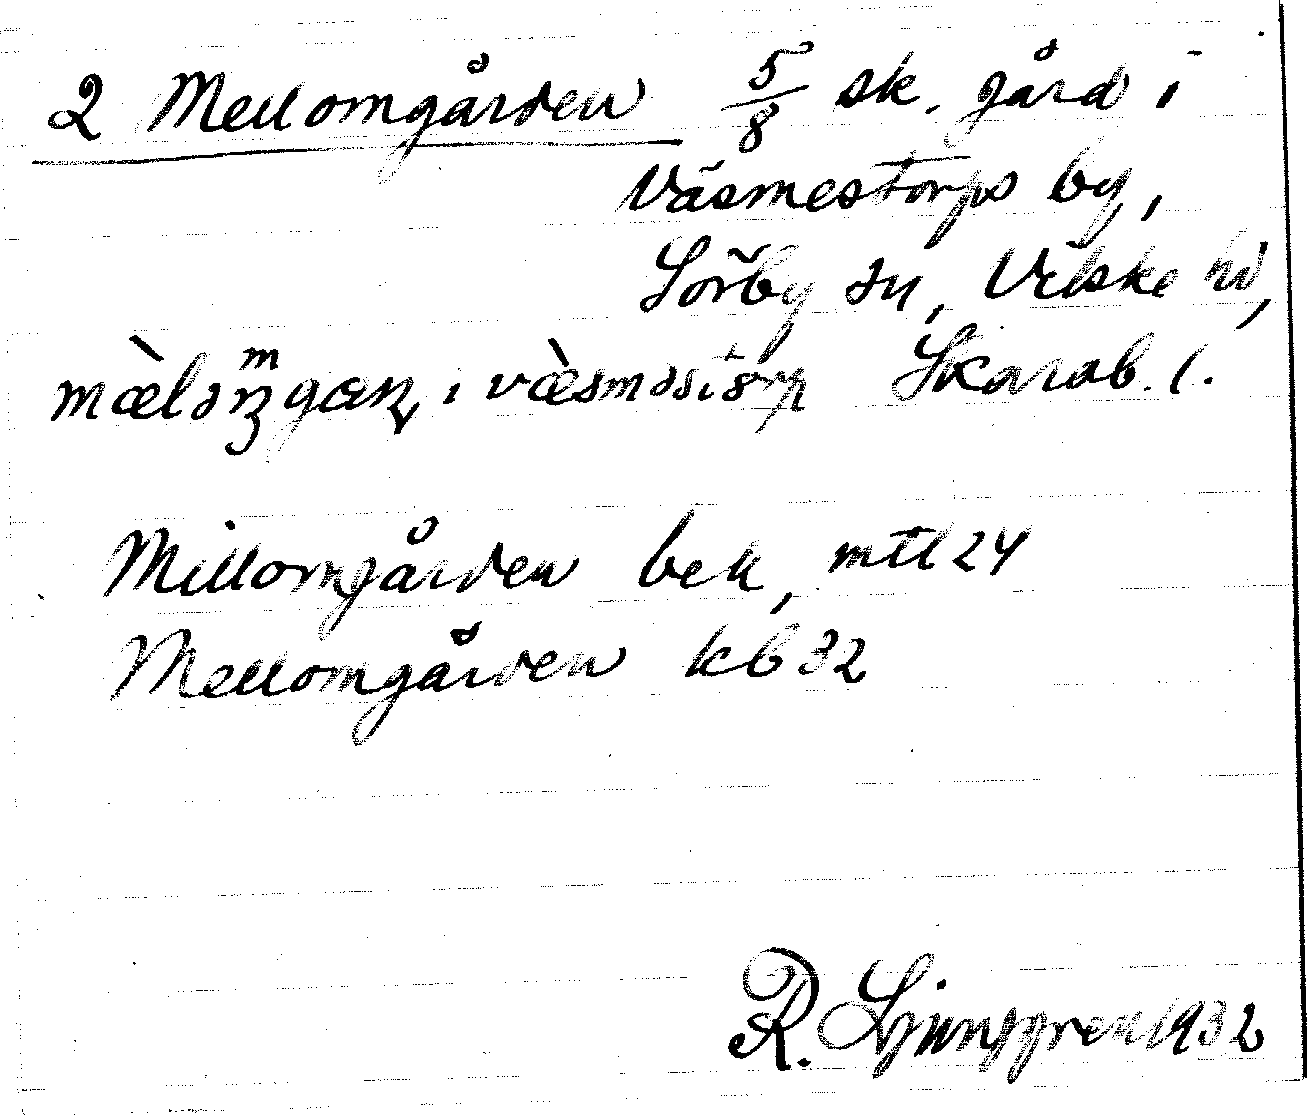 2 Mellomgården 5/8 sk. gård i
Väsmestorps by,
Sörby sn, Vilske hd,
Skarab. l.
Millomgården bek, mtl 24
Mellomgården kb 32
R. Ljunggren 1932